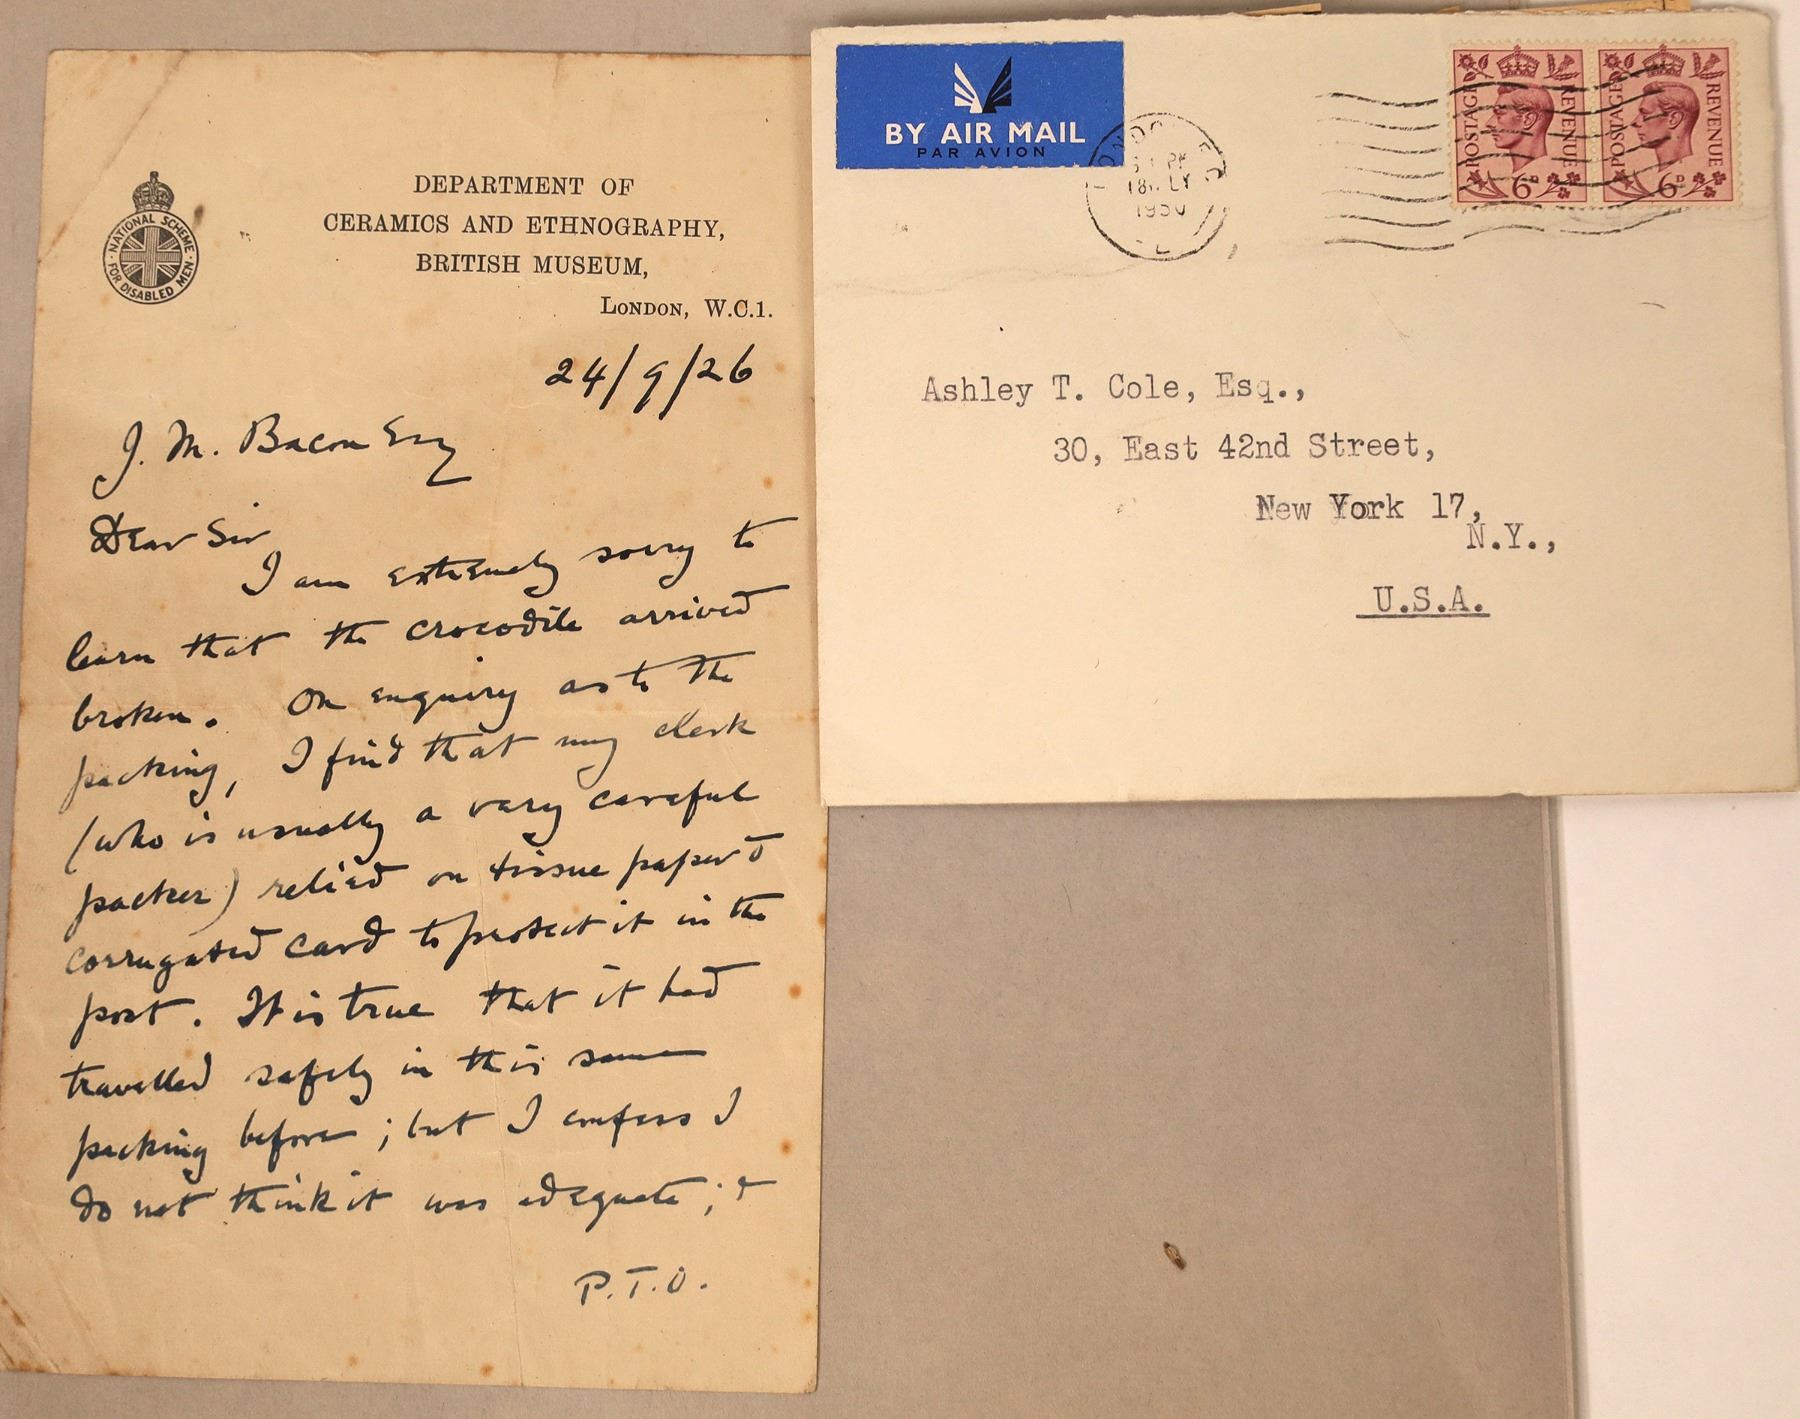 NATIONAL SCHEME
FOR DISABLED MEN
DEPARTMENT OF
CERAMICS AND ETHNOGRAPHY,
BRITISH MUSEUM,
LONDON, W.C.1.
24/9/26
J. M. Bacon Esq
Dear Sir
I am extremely sorry to
learn that the crocodile arrived
broken. On enquiry as to the
packing, I find that my clerk
(who is usually a very careful
packer) relied on tissue paper &
corrugated card to protect it in the
post. It is true that it had
travelled safely in this same
packing before; but I confess I
do not think it was adequate; &
P.T.O.
BY AIR MAIL
PAR AVION
PM
1950
POSTAGE REVENUE
6D
POSTAGE REVENUE
6D
Ashley T. Cole, Esq.,
30, East 42nd Street,
New York 17,
N.Y.,
U.S.A.